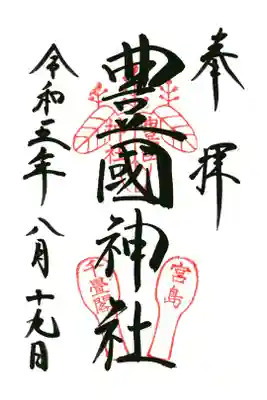 奉拝
豊國神社
令和五年八月十九日
千畳閣
宮島